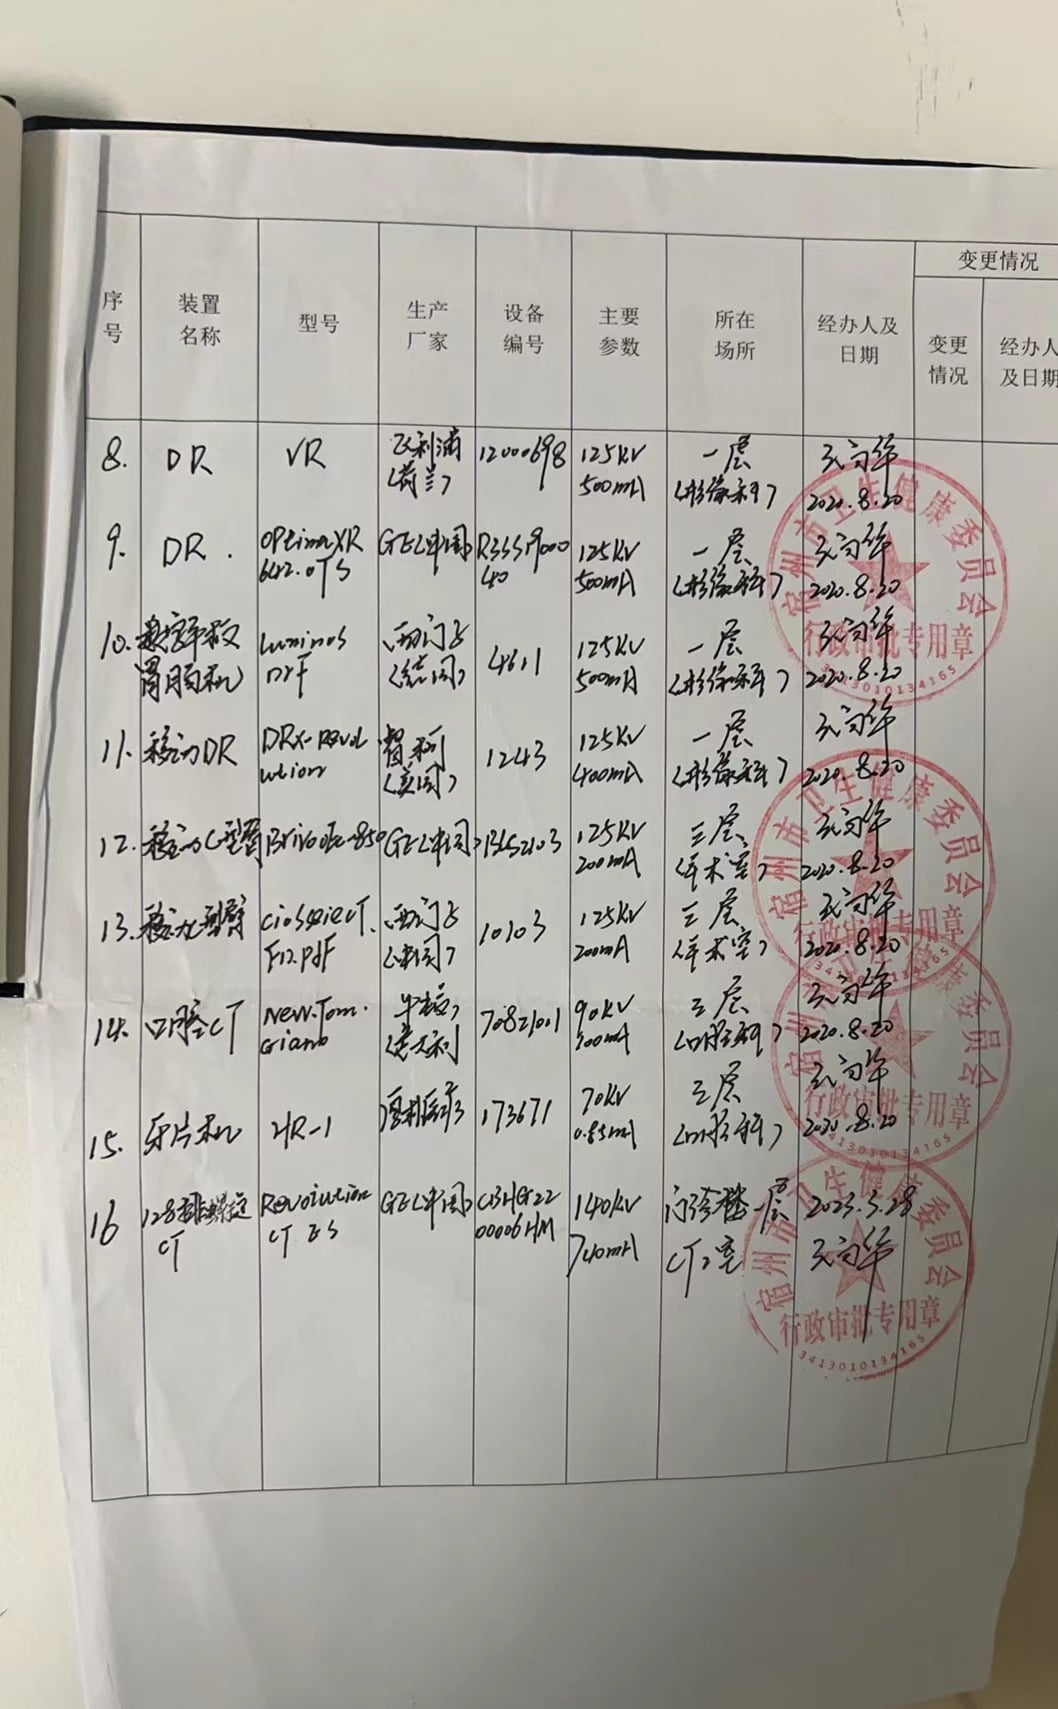 序号 装置名称 型号 生产厂家 设备编号 主要参数 所在场所 经办人及日期 变更情况
变更情况 经办人及日期
8. DR VR 飞利浦 12000698 125KV 一层
(荷兰) 500mA (影像科) 2020.8.20
9. DR. OPtimaXR GE(中国) R3SS19000 125KV 一层
642.0TS 40 500mA (影像科) 2020.8.20
10. Luminos 西门子 4611 125KV 一层
胃肠机 Drf (德国) 500mA (影像科) 2020.8.20
11. 移动DR DRX-Revol 1243 125KV 一层
ution (美国) 400mA (影像科) 2020.8.20
12. 移动C型臂 Brivooec-850 GE(中国) B1S2103 125KV 三层
200mA (手术室) 2020.8.20
13. 移动C型臂 西门子 10103 125KV 三层
(中国) 200mA (手术室) 2020.8.20
14. 口腔CT New.Tom. 70821001 90KV 三层
Giano (意大利) (口腔科) 2020.8.20
15. 牙片机 HR-1 173671 70KV 三层
0.85mA (口腔科) 2020.8.20
16 128排螺旋 Revolution GE(中国) CBHG22 140KV 门诊楼一层 2023.3.28
CT CT ES 00006HM 740mA CT2室
宿州市卫生健康委员会
行政审批专用章
3413010134165
宿州市卫生健康委员会
行政审批专用章
3413010134165
宿州市卫生健康委员会
行政审批专用章
3413010134165
宿州市卫生健康委员会
行政审批专用章
3413010134165